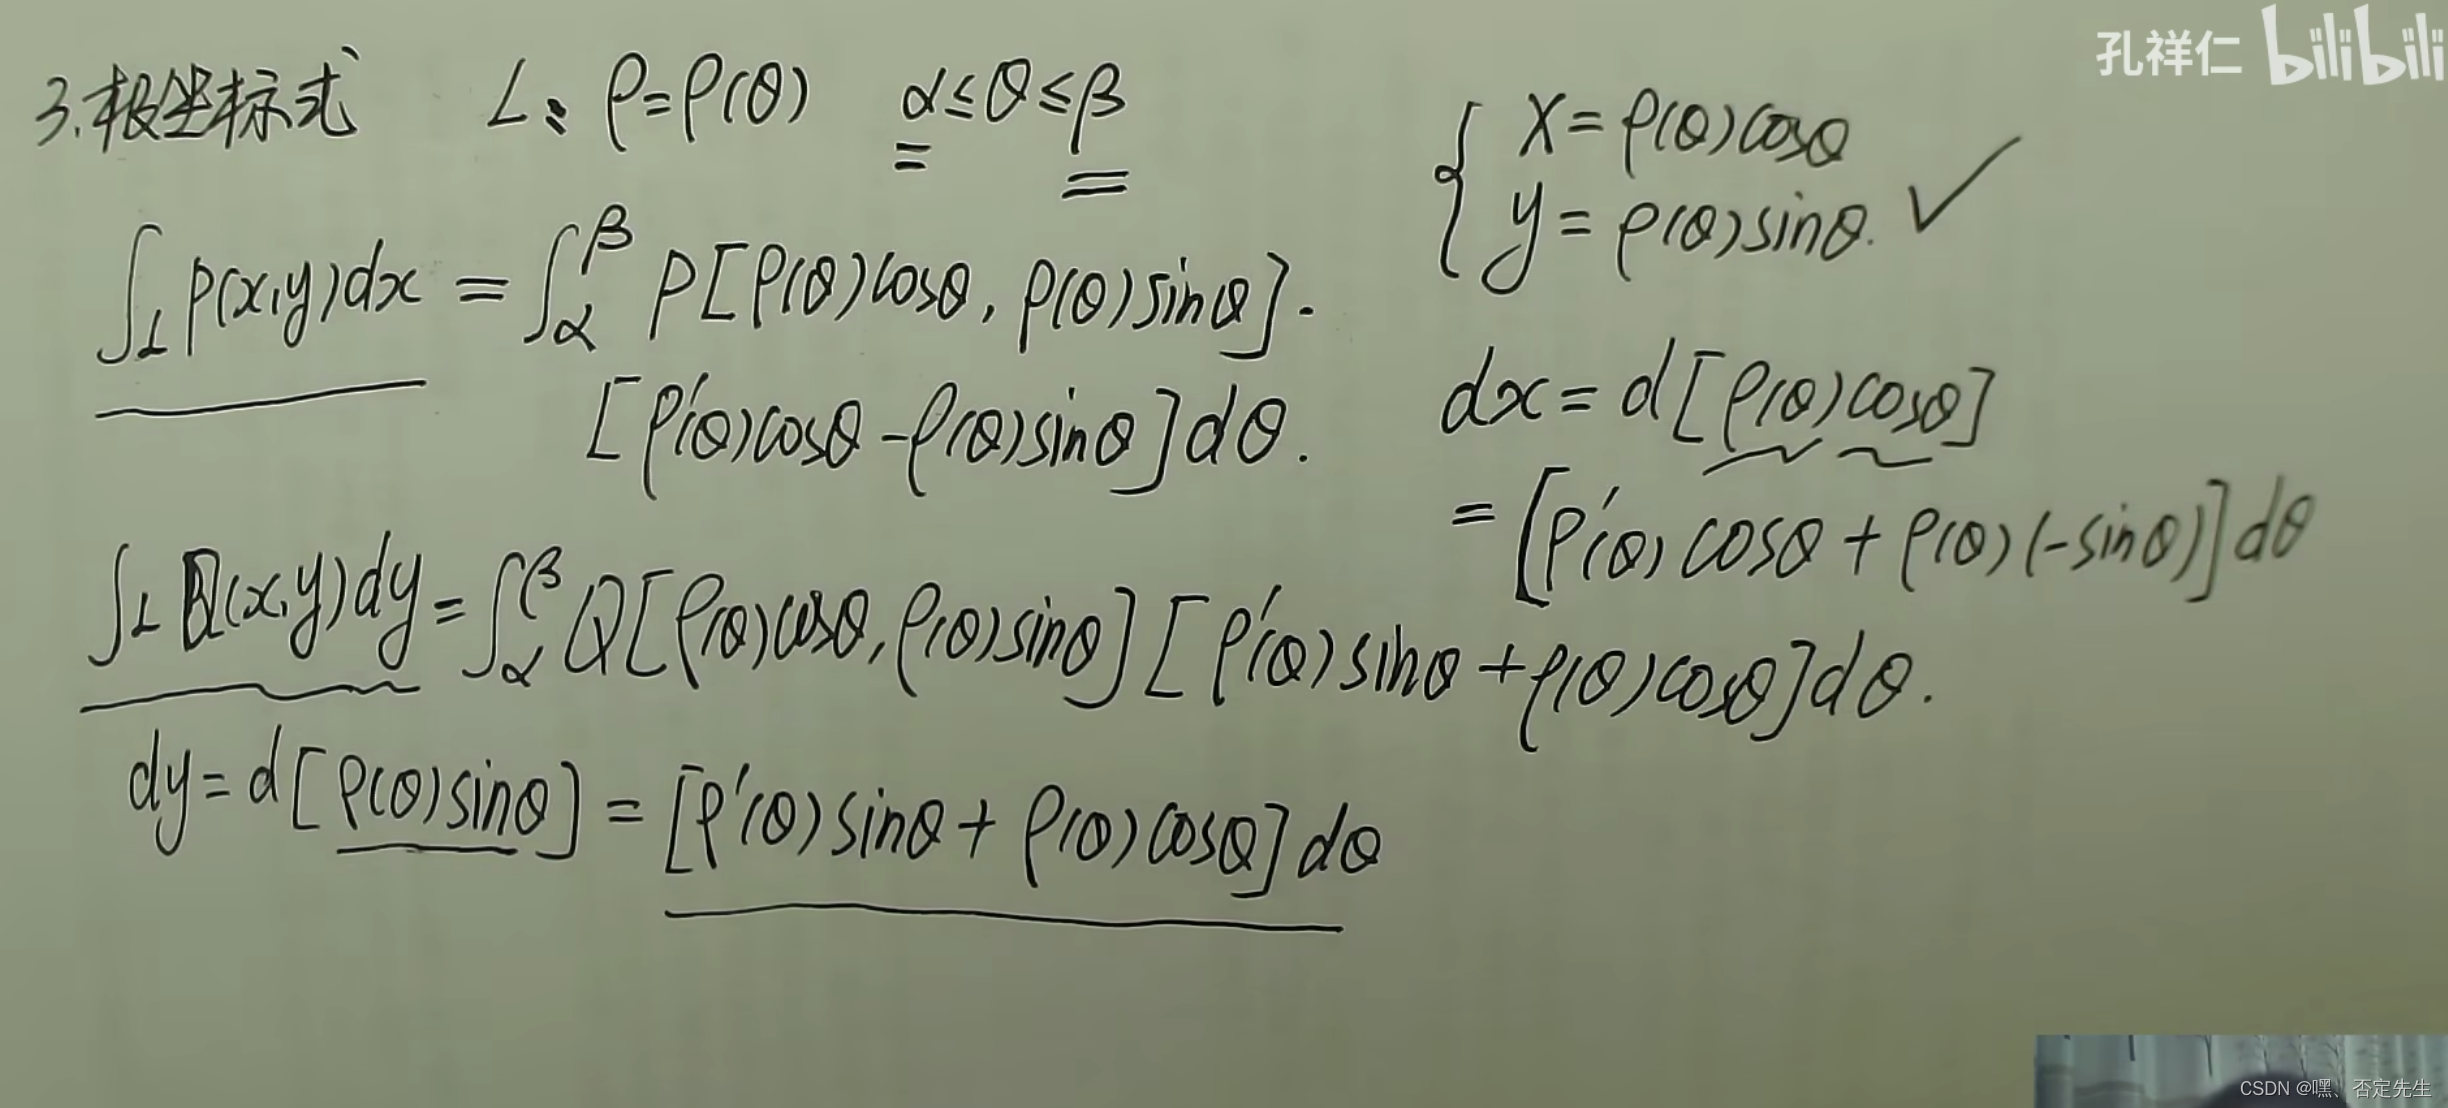 孔祥仁 bilibili
3.极坐标式 L: ρ=ρ(θ) α≤θ≤β
{ x=ρ(θ)cosθ
y=ρ(θ)sinθ. ✓
∫_L P(x,y)dx = ∫_α^β P[ρ(θ)cosθ, ρ(θ)sinθ]·
[ρ'(θ)cosθ-ρ(θ)sinθ]dθ.
dx=d[ρ(θ)cosθ]
=[ρ'(θ)cosθ+ρ(θ)(-sinθ)]dθ
∫_L Q(x,y)dy=∫_α^β Q[ρ(θ)cosθ,ρ(θ)sinθ][ρ'(θ)sinθ+ρ(θ)cosθ]dθ.
dy=d[ρ(θ)sinθ]=[ρ'(θ)sinθ+ρ(θ)cosθ]dθ
CSDN @嘿、否定先生